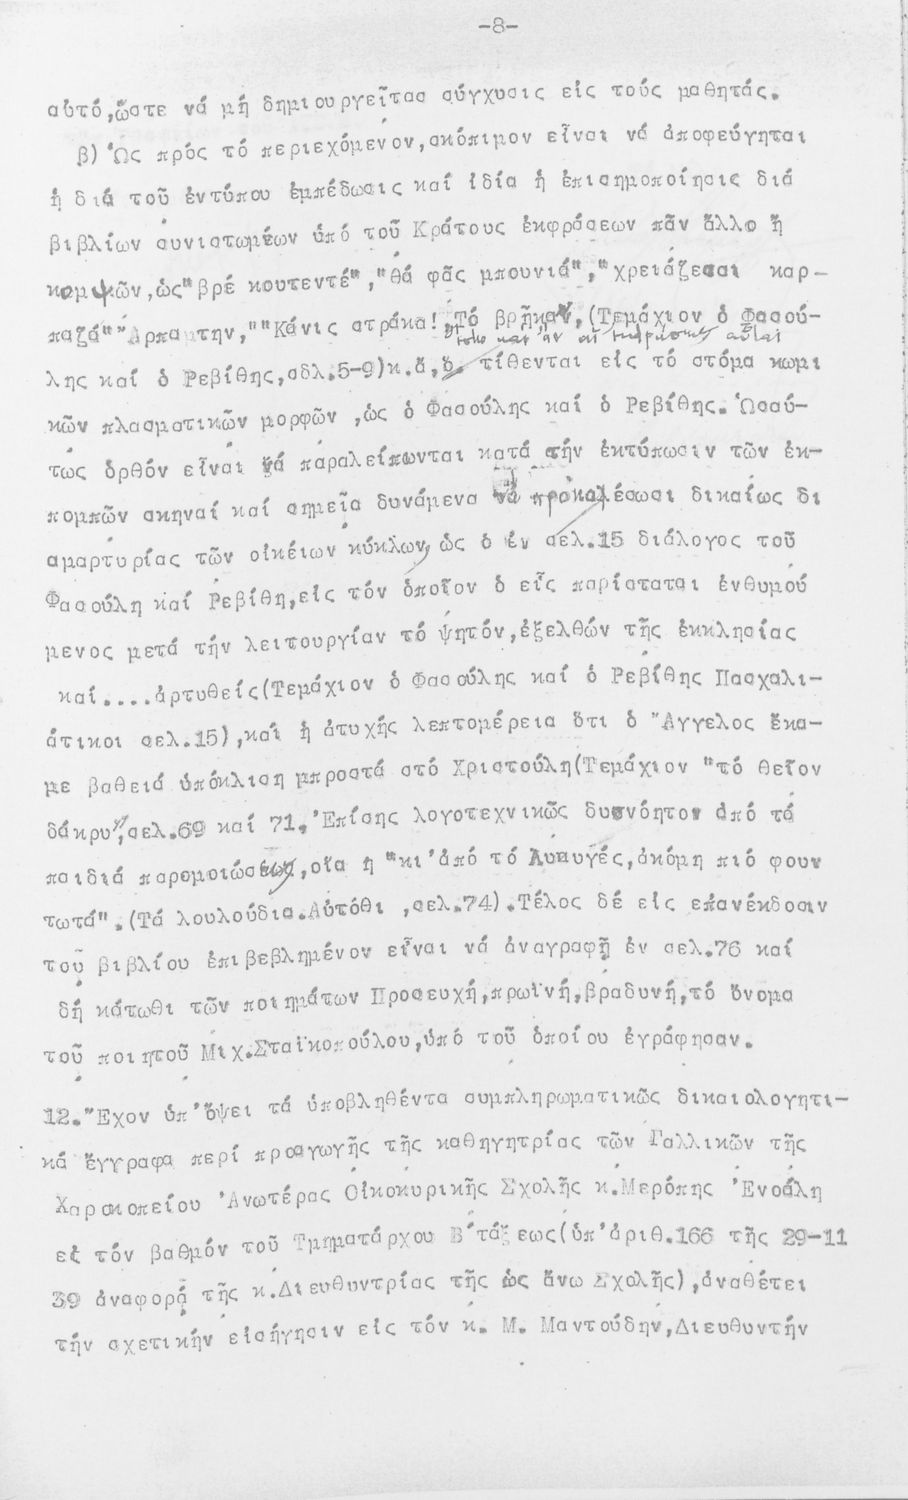 -8-
αὐτό,ὥστε νά μή δημιουργεῖτασ σύγχυσις εἰς τούς μαθητάς.
β) Ὡς πρός τό περιεχόμενον,σκόπιμον εἶναι νά ἀποφεύγηται
ἡ διά τοῦ ἐντύπου ἐμπέδωσις καί ἰδία ἡ ἐπισημοποίησις διά
βιβλίων συνιστωμένων ὑπό τοῦ Κράτους ἐκφράσεων πᾶν ἄλλο ἤ
κομψῶν,ὡς"βρέ κουτεντέ","θά φᾶς μπουνιά","χρειάζεσαι καρ-
παζά""Ἄρπα την,""Κάνις στράκα!"Τό βρῆκαν,(Τεμάχιον ὁ Φασού-
ἔστω καί ἄν αἱ ἐκφράσεις αὗται
λης καί ὁ Ρεβίθης,σδλ.5-9)κ.ἄ, τίθενται εἰς τό στόμα κωμι
κῶν πλασματικῶν μορφῶν ,ὡς ὁ Φασούλης καί ὁ Ρεβίθης. Ὡσαύ-
τως ὀρθόν εἶναι νά παραλείπωνται κατά τήν ἐκτύπωσιν τῶν ἐκ-
πομπῶν σκηναί καί σημεῖα δυνάμενα νά προκαλέσωσι δικαίως δι
αμαρτυρίας τῶν οἰκείων κύκλων, ὡς ὁ ἐν σελ.15 διάλογος τοῦ
Φασούλη καί Ρεβίθη,εἰς τόν ὁποῖον ὁ εἷς παρίσταται ἐνθυμού
μενος μετά τήν λειτουργίαν τό ψητόν,ἐξελθών τῆς ἐκκλησίας
καί....ἀρτυθείς(Τεμάχιον ὁ Φασούλης καί ὁ Ρεβίθης Πασχαλι-
άτικοι σελ.15),καί ἡ ἀτυχής λεπτομέρεια ὅτι ὁ Ἄγγελος ἔκα-
με βαθειά ὑπόκλιση μπροστά στό Χριστούλη(Τεμάχιον "τό θεῖον
δάκρυ",σελ.69 καί 71. Ἐπίσης λογοτεχνικῶς δυσνόητοι ἀπό τά
παιδιά παρομοιώσεις,οἵα ἡ "κι'ἀπό τό λυκυγές,ἀκόμη πιό φουν
τωτά".(Τά λουλούδια.Αὐτόθι ,σελ.74).Τέλος δέ εἰς ἐπανέκδοσιν
τοῦ βιβλίου ἐπιβεβλημένον εἶναι νά ἀναγραφῇ ἐν σελ.76 καί
δή κάτωθι τῶν ποιημάτων Προσευχή,πρωϊνή,βραδυνή,τό ὄνομα
τοῦ ποιητοῦ Μιχ.Σταϊκοπούλου,ὑπό τοῦ ὁποίου ἐγράφησαν.
12."Εχον ὑπ'ὄψει τά ὑποβληθέντα συμπληρωματικῶς δικαιολογητι-
κά ἔγγραφα περί προαγωγῆς τῆς καθηγητρίας τῶν Γαλλικῶν τῆς
Χαροκοπείου Ἀνωτέρας Οἰκοκυρικῆς Σχολῆς κ.Μερόπης Ἐνοάλη
εἰ τόν βαθμόν τοῦ Τμηματάρχου Β΄τάξεως(ὑπ'ἀριθ.166 τῆς 29-11
39 ἀναφορά τῆς κ.Διευθυντρίας τῆς ὡς ἄνω Σχολῆς),ἀναθέτει
τήν σχετικήν εἰσήγησιν εἰς τόν κ. Μ. Μαντούδην,Διευθυντήν